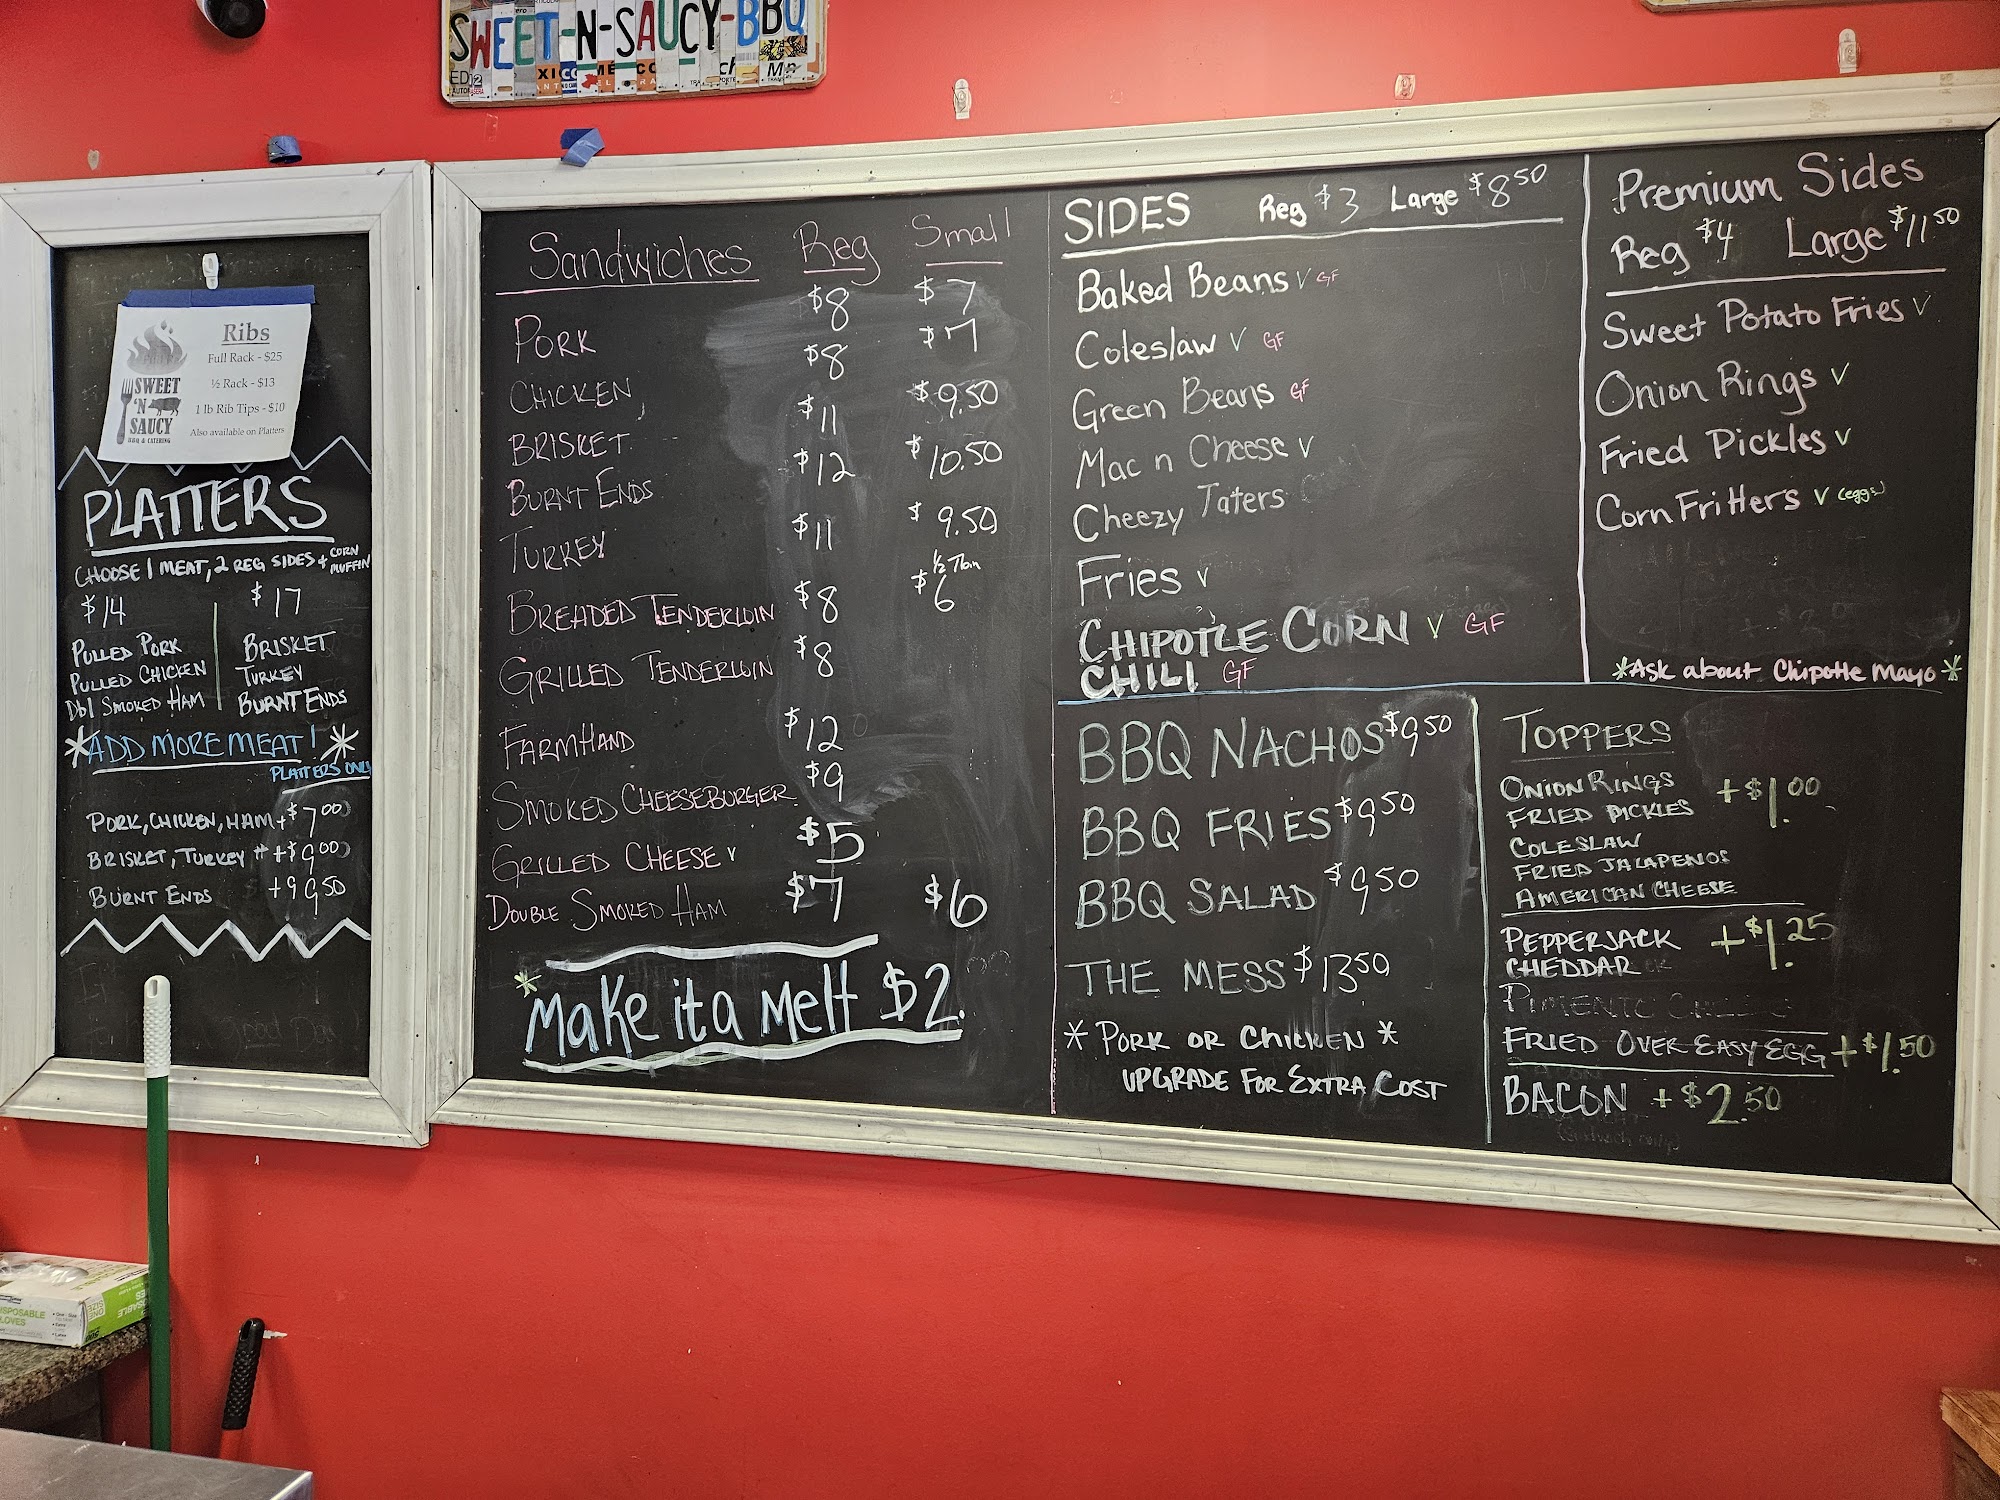 SWEET-N-SAUCY-BBQ
Ribs
Full Rack - $25
½ Rack - $13
1 lb Rib Tips - $10
Also available on Platters
SWEET
'N
SAUCY
BBQ & CATERING
PLATTERS
CHOOSE 1 MEAT, 2 REG SIDES + CORN MUFFIN
$14 $17
PULLED PORK BRISKET
PULLED CHICKEN TURKEY
Dbl SMOKED HAM BURNT ENDS
*ADD MORE MEAT! *
PLATTERS ONLY
PORK, CHICKEN, HAM +$7.00
BRISKET, TURKEY +$9.00
BURNT ENDS +9.50
Sandwiches Reg Small
PORK $8 $7
CHICKEN $8 $7
BRISKET $11 $9.50
BURNT ENDS $12 $10.50
TURKEY $11 $9.50
BREADED TENDERLOIN $8 ½ Tbn $6
GRILLED TENDERLOIN $8
FARMHAND $12
SMOKED CHEESEBURGER $9
GRILLED CHEESE V $5
DOUBLE SMOKED HAM $7 $6
*Make it a Melt $2.
SIDES Reg $3 Large $8.50
Baked Beans V GF
Coleslaw V GF
Green Beans GF
Mac n Cheese V
Cheezy Taters
Fries V
CHIPOTLE CORN V GF
CHILI GF
Premium Sides
Reg $4 Large $11.50
Sweet Potato Fries V
Onion Rings V
Fried Pickles V
Corn Fritters V (eggs)
*Ask about Chipotle Mayo*
BBQ NACHOS $9.50
BBQ FRIES $9.50
BBQ SALAD $9.50
THE MESS $13.50
* PORK OR CHICKEN *
UPGRADE FOR EXTRA COST
TOPPERS
ONION RINGS +$1.00
FRIED PICKLES
COLESLAW
FRIED JALAPENOS
AMERICAN CHEESE
PEPPERJACK +$1.25
CHEDDAR
FRIED OVER EASY EGG +$1.50
BACON +$2.50